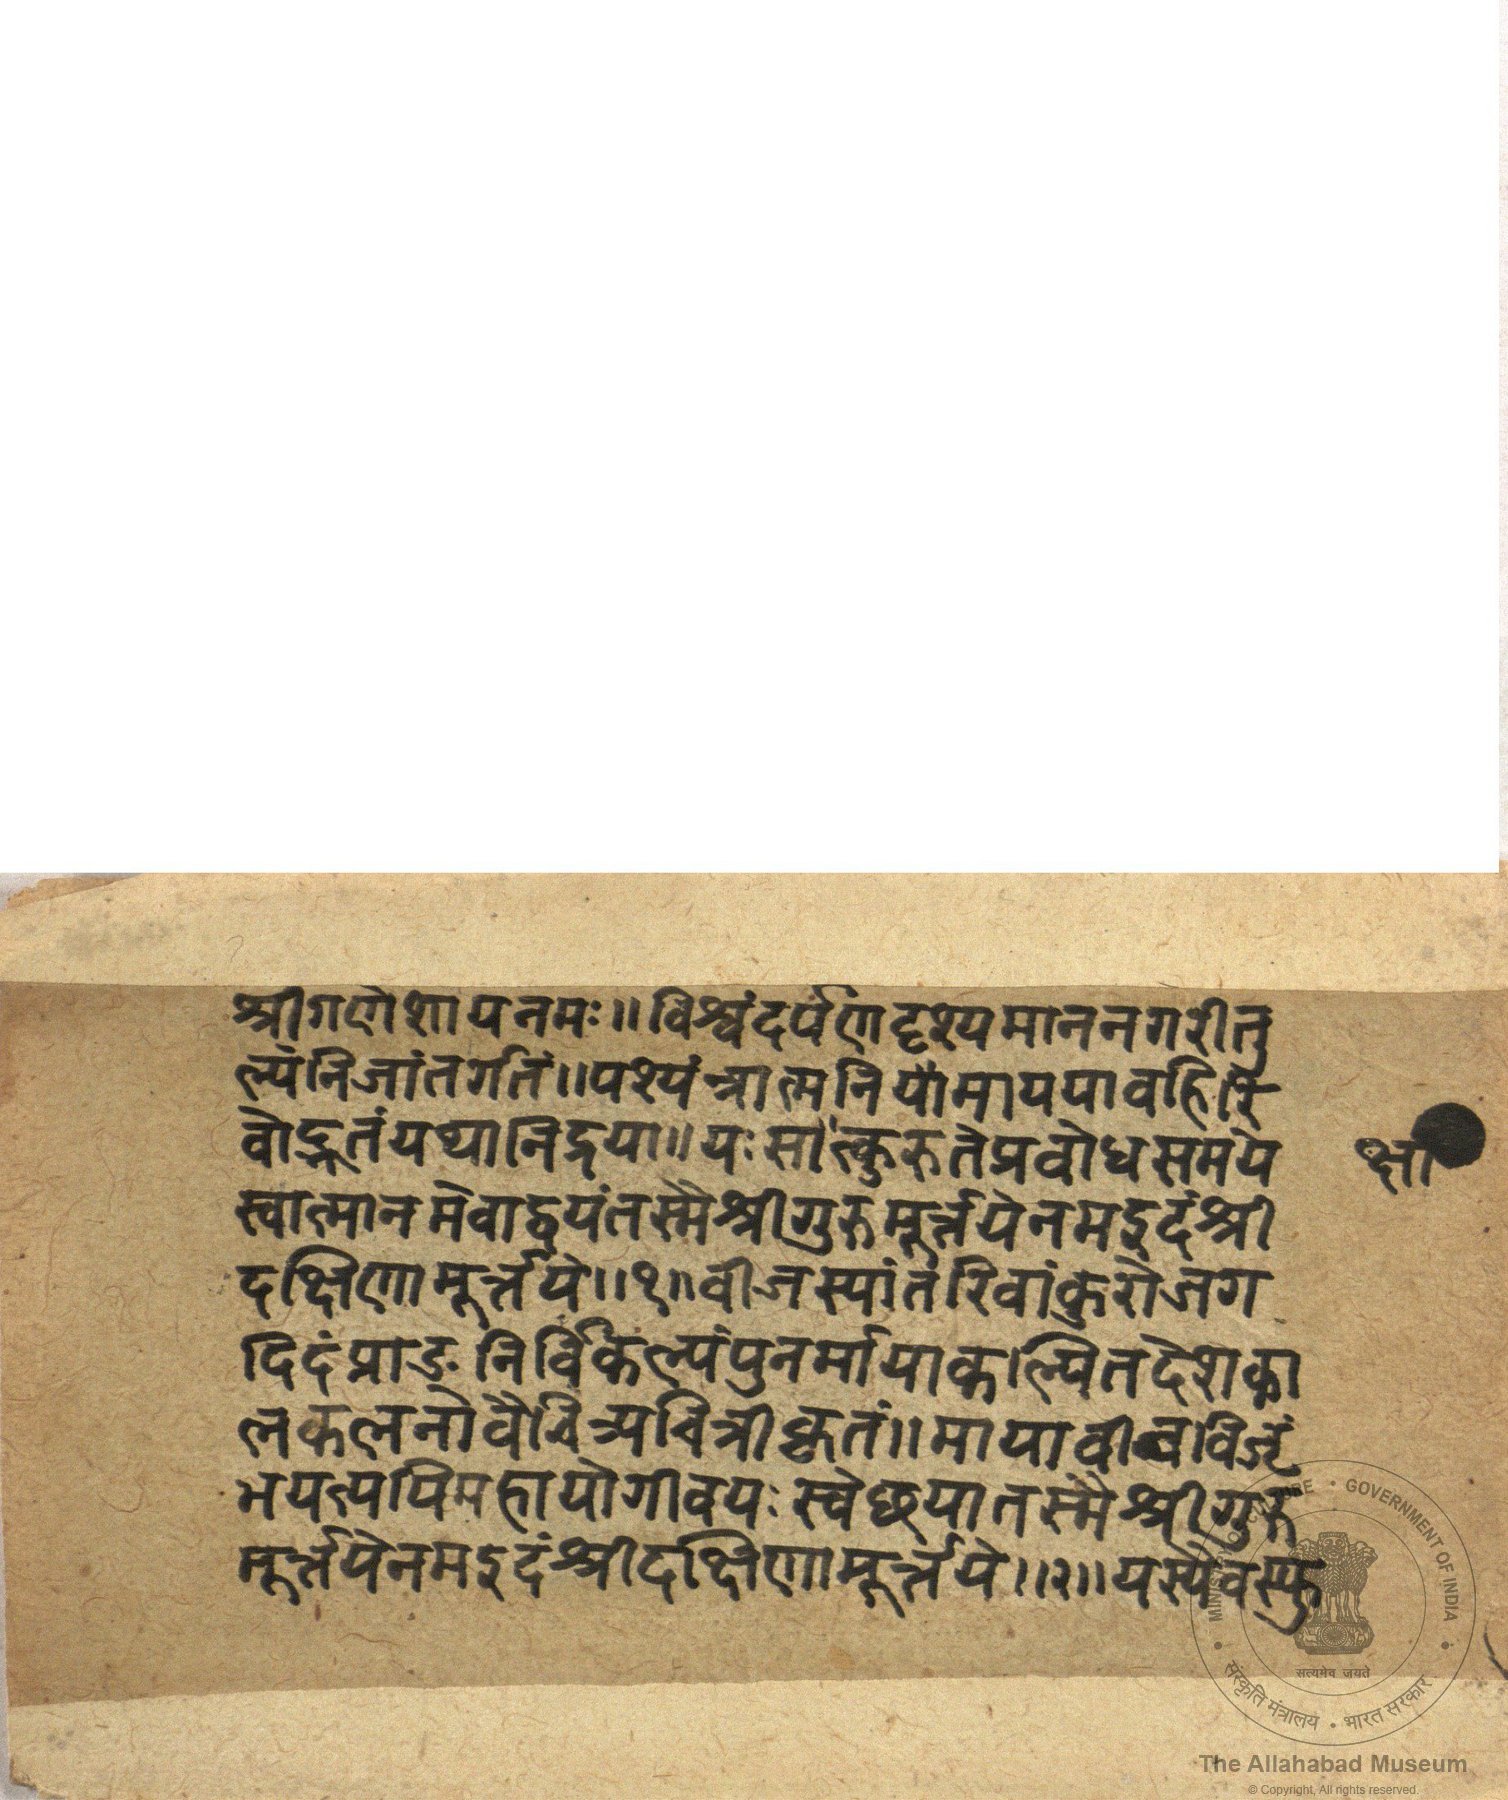 श्रीगणेशायनमः॥विश्वंदर्पणदृश्यमाननगरीतु
ल्यंनिजांतर्गतं॥पश्यंन्नात्मनियोमाययावहिरि
वोद्भूतंयथानिद्रया॥यःसात्कुरुतेप्रवोधसमये
क्षा
स्वात्मानमेवाद्वयंतस्मैश्रीगुरुमूर्त्तयेनमइदंश्री
दक्षिणामूर्त्तये॥१॥वीजस्यांतरिवांकुरोजग
दिदंप्राङनिर्विकल्पंपुनर्मायाकल्पितदेशका
लकलनोवैचित्र्यचित्रीकृतं॥मायावीवविजृं
भयत्यपिमहायोगीवयःस्वेछयातस्मैश्रीगुरु
मूर्त्तयेनमइदंश्रीदक्षिणामूर्त्तये॥२॥यस्यैवस्फु
MINISTRY OF CULTURE • GOVERNMENT OF INDIA
सत्यमेव जयते
संस्कृति मंत्रालय • भारत सरकार
The Allahabad Museum
© Copyright, All rights reserved.